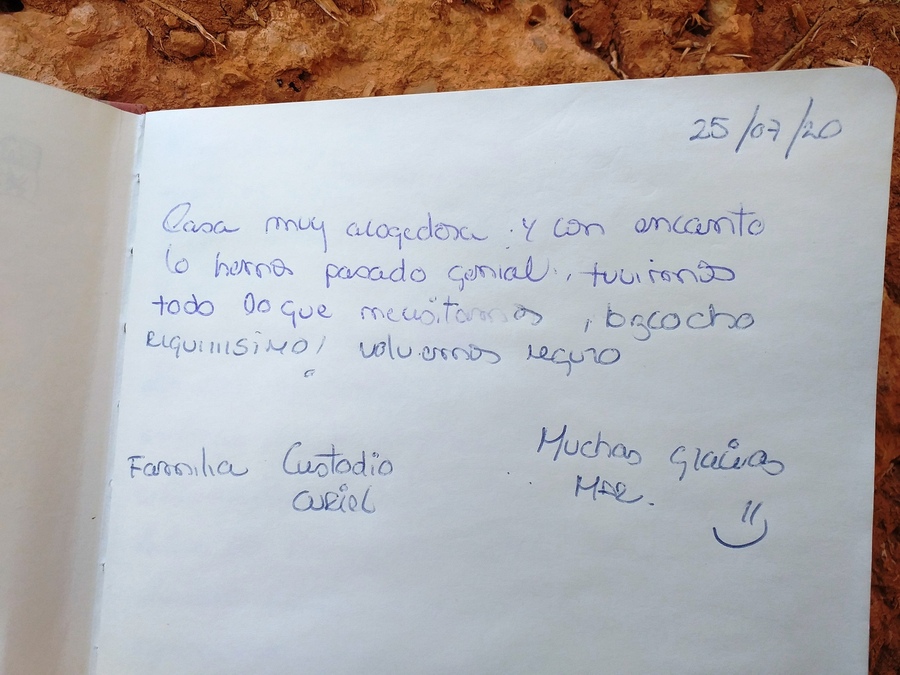 25/07/20
Casa muy acogedora y con encanto
lo hemos pasado genial, tuvimos
todo lo que necesitamos, bizcocho
RIQUIIISIMO! volvemos seguro
Familia Custodio
CURIEL
Muchas gracias
MAR.